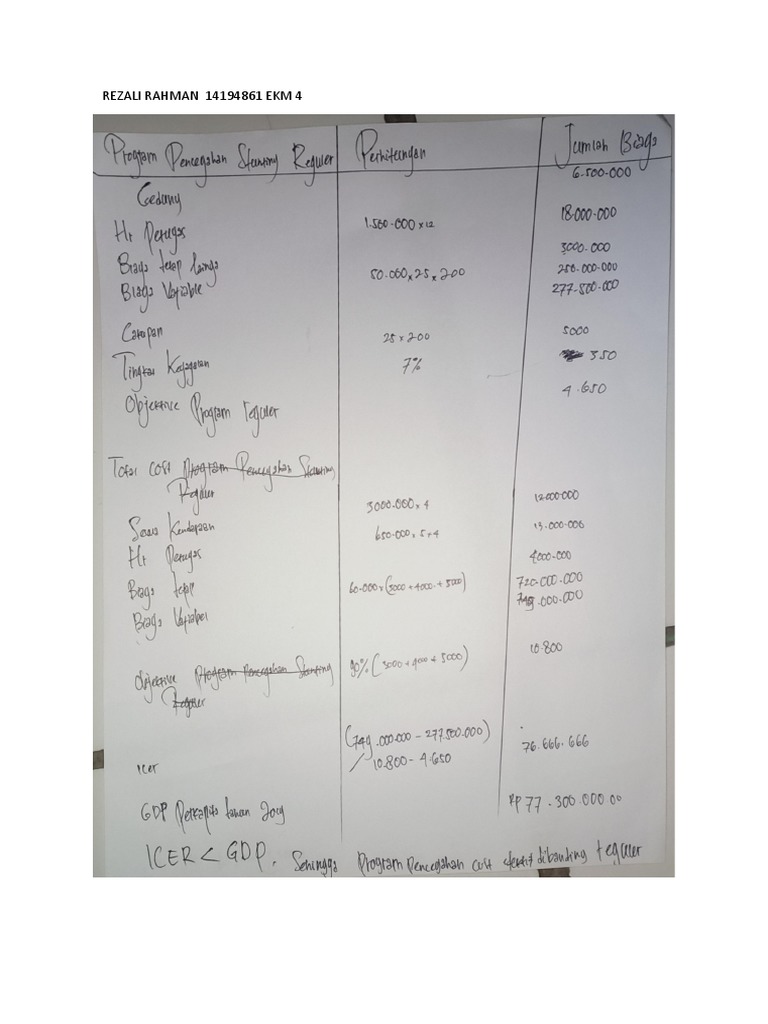 REZALI RAHMAN 14194861 EKM 4
Program Pencegahan Stunting Reguler Perhitungan Jumlah Biaya
Gedung 6.500.000
Hr Petugas 1.500.000 x 12 18.000.000
Biaya tetap lainya 3000.000
Biaya Variable 50.000 x 25 x 200 250.000.000
277.500.000
Carapan 25 x 200 5000
Tingkat Kegagalan 7% 350
Objektive Program reguler 4.650
Total cost Program Pencegahan Stunting
Reguler
Sewa Kendaraan 3000.000 x 4 12.000.000
Hr Petugas 650.000 x 5 x 4 13.000.000
Biaya tetap 4000.000
Biaya Variabel 60.000 x (3000 + 4000 + 5000) 720.000.000
749.000.000
Objektive Program Pencegahan Stunting 90% (3000 + 4000 + 5000) 10.800
Reguler
Icer (749.000.000 - 277.500.000) 76.666.666
/ 10.800 - 4.650
GDP Perkapita tahun RP 77.300.000.00
ICER < GDP. Sehingga Program Pencegahan cost dibanding reguler